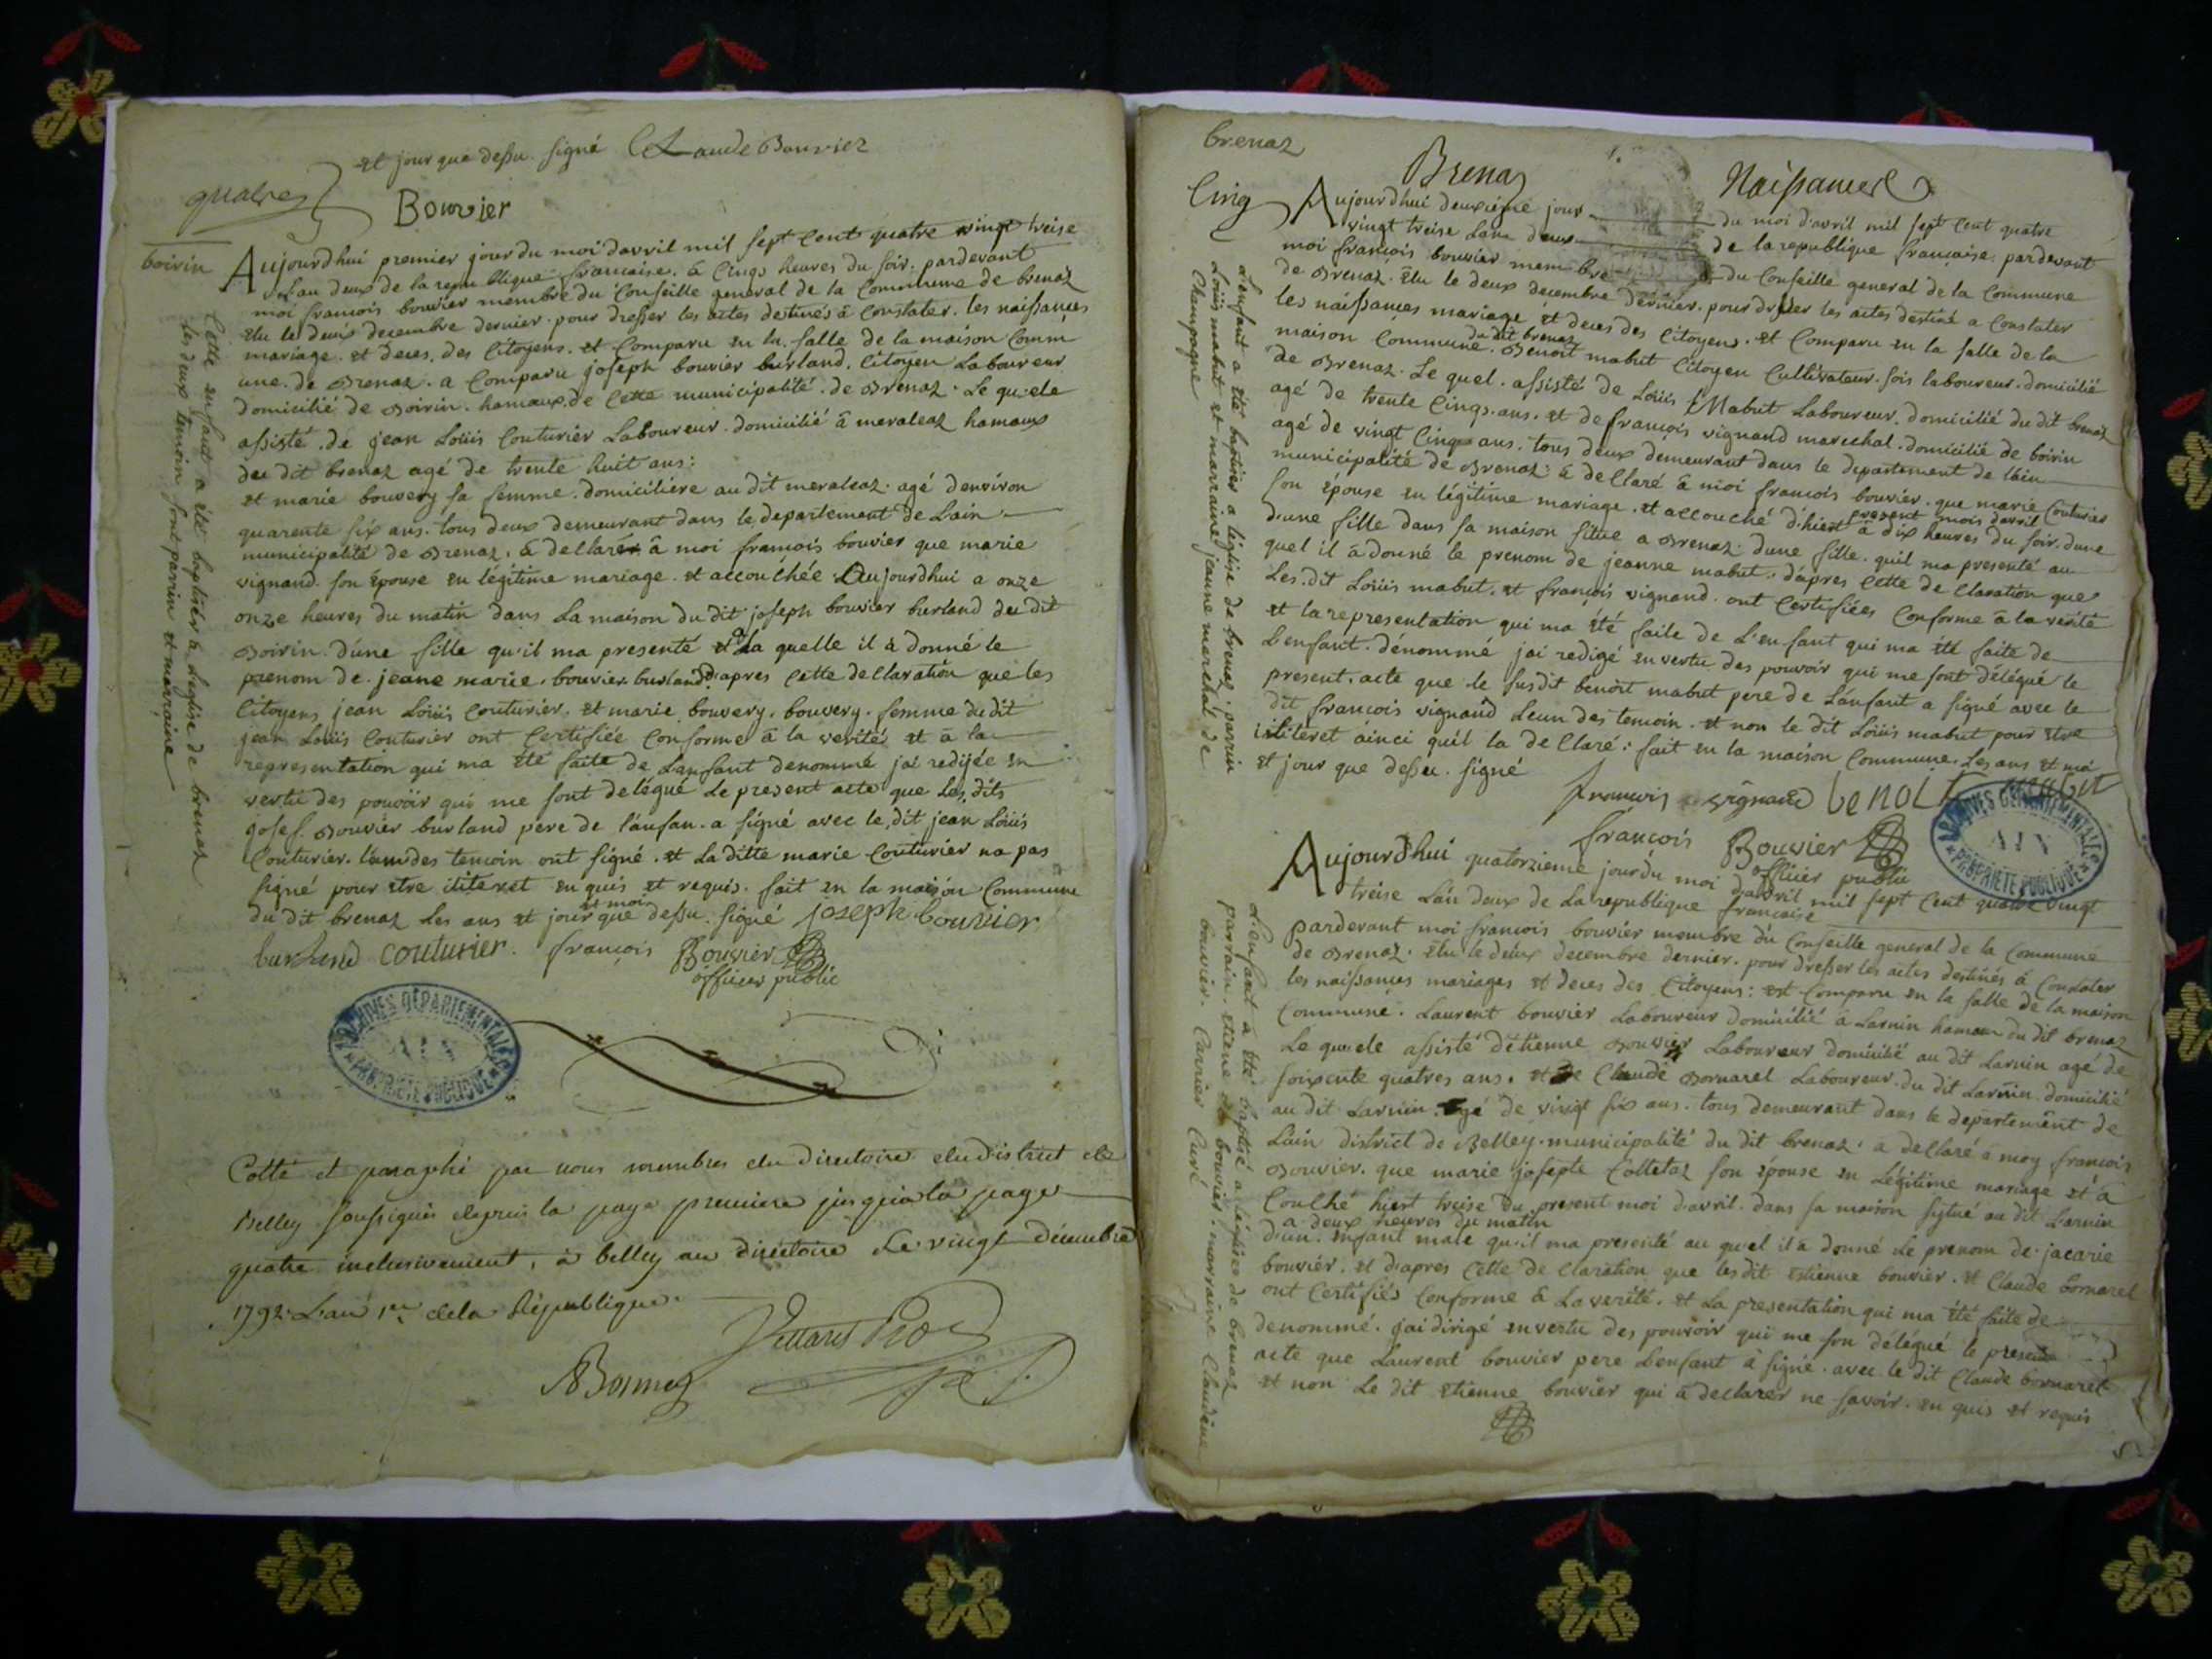 et jour que dessu. signé Claude Bouvier
quatres
Bouvier
boirin
Aujourdhui premier jour du moi davril mil sept cent quatre vingt treise
Lan deux de la republique francaise. à cinqs heures du soir. pardevant
moi francois bouvier membre du conseille general de la commune de brenaz
élu le deux decembre dernier. pour dresser les actes destinés à constater. les naissances
mariage. et deces. des citoyens. et comparu en la salle de la maison comm
une. de Brenaz. a comparu joseph bouvier burland. citoyen Laboureur
domicilié de Boirin. hamaux de cette municipalité. de Brenaz. Le quele
assisté. de jean Loüis couturier Laboureur domicilié à meraleaz hamaux
du dit brenaz agé de trente huit ans:
et marie bouvery sa femme. domiciliere au dit meraleaz. agé denviron
quarente six ans. tous deux demeurant dans le departement de Lain
municipalité de Brenaz. à dellaré à moi francois bouvier que marie
vignand son épouse en légitime mariage. et accouchée Aujourdhui a onze
onze heures du matin dans La maison du dit joseph bouvier burland du dit
Boirin d'une fille qu'il ma presenté à La quelle il à donné le
prenom de jeane marie. bouvier burland dapres cette dellaration que les
citoyens jean Loüis couturier. et marie bouvery. bouvery. femme du dit
jean Loüis couturier ont certifiée conforme à la verité et à la
representation qui ma été faite de Lanfant denommé jai redijée en
vertu des pouvoir qui me sont delégué Le present acte que Les dits
josef. Bouvier burland pere de lanfan. a signé avec le dit jean Loüis
couturier. l'un des temoin ont signé. et La ditte marie couturier na pas
signé pour etre iliteret en quis et requis. fait en la maison commune
du dit brenaz Les ans et jour et moi que dessu. signé joseph bouvier
burland couturier. françois Bouvier
officier public
Cette enfant a été baptisér à Léglise de brenaz
les deux temoin sont parrin et marraine
ARCHIVES DÉPARTEMENTALES
AIN
PROPRIÉTÉ PUBLIQUE
Cotté et paraphé par nous membres du Directoire du District de
Belley soussignés depuis la page premiere jusqu'a la page
quatre inclusivement, à belley au directoire Le vingt décembre
1792. L'an 1er de la République.
brenaz
Brenaz
Naissances
cinq
Aujourdhui deuxiéme jour du moi d'avril mil sept cent quatre
vingt treise Lan deux de la republique française pardevant
moi françois bouvier membre du conseille general de la commune
de Brenaz. élu le deux decembre dernier. pour dresser les actes destiné a constater
les naissances mariage et deces des citoyens. et comparu en la salle de la
maison commune. du dit brenaz Benoit mabut citoyen cultivateur. sois laboureur. domicilié
de Brenaz. Le quel. assisté de Loüis Mabut Laboureur. domicilié du dit brenaz
agé de trente cinqs. ans. et de françois vignand marechal. domicilié de boirin
agé de vingt cinqs ans. tous deux demeurant dans le departement de l'ain
municipalité de Brenaz. à dellaré à moi francois bouvier. que marie couturier
son épouse en légitime mariage. et accouché d'hiert present mois davril à dix heures du soir. dune
d'une fille dans sa maison situe a Brenaz. dune fille. quil ma presenté au
quel il à donné le prenom de jeanne mabut. d'apres cette dellaration que
Les. dit Loüis mabut. et françois vignand. ont certifiées conforme à la verité
et la representation qui ma été faite de L'enfant qui ma été faite de
Lenfant. dénommé jai redigé en vertu des pouvoir qui me sont délégué le
present. acte que le susdit benoit mabut pere de Lanfant a signé avec le
dit francois vignand Leun des temoin. et non le dit Loüis mabut pour etre
iliteret ainci quil la dellaré: fait en la maison commune. Les ans et moi
et jour que dessu. signé
françois vignand benoit mabut
françois Bouvier
officier public
Lenfant a été baptisér à léglise de brenaz. parrin
Loüis mabut et marraine jeanne merchal de
champagne
ARCHIVES DÉPARTEMENTALES
AIN
PROPRIÉTÉ PUBLIQUE
Aujourdhui quatorzieme jour du moi d'avril mil sept cent quatre vingt
treise L'an deux de La republique francaise
pardevant moi francois bouvier membre du conseille general de la commune
de Brenaz. élu le deux decembre dernier. pour dresser les actes destinés à constater
les naissances mariages et deces des citoyens: est comparu en la salle de la maison
commune. Laurent bouvier Laboureur domicilié à Larnin hamau du dit brenaz
Le quele assisté détienne Bouvier Laboureur domicilié au dit Larnin agé de
soixente quatres ans. et de Claude Bornarel Laboureur du dit Larnin domicilié
au dit Larnin. agé de vingt six ans. tous demeurant dans le departement de
Lain district de Belley. municipalité du dit brenaz. a dellaré a moy francois
Bouvier. que marie josepte Colletaz son épouse en Légitime mariage et à
couché hiert treise du present moi d'avril. dans sa maison sytué au dit Larnin
a deux heures du matin
d'un. enfant male qu'il ma presenté au quel il à donné Le prenom de. jacarie
bouvier. et d'apres cette dellaration que lesdit Etienne bouvier. et Claude bornarel
ont certifiés conforme à La verité. et La presentation qui ma été faite de
denommé. jai dirigé en vertu des pouvoir qui me son délégué le present
acte que Laurent bouvier pere Lenfant à signé. avec le dit Claude bornarel
et non Le dit Etienne bouvier qui à declarér ne savoir. en quis et requis
Lenfant à été baptisé à léglise de brenaz
parrain. etiene bouvier. marraine Claudine
bouvier. Carrier curé